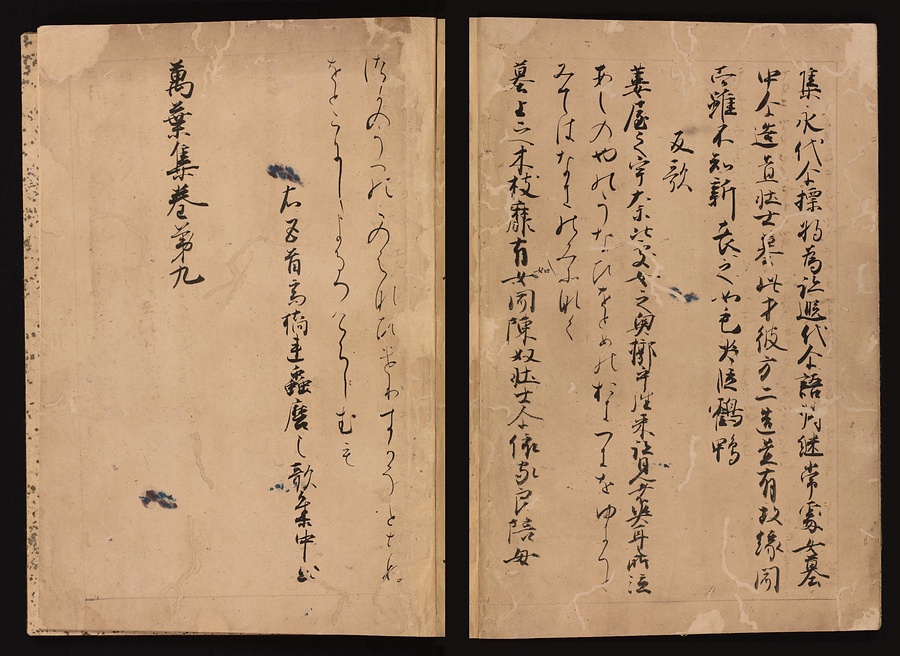 集永代尓標将為跡遐代尓語将継常處女墓
中尓造置壮士墓此方彼方二造置有故縁聞
而雖不知新喪之如毛哭泣鶴鴨
反歌
葦屋之宇奈比處女之奥槨乎徃来跡見者哭耳所泣
あしのやのうなひをとめのおくつきをゆき
みてはなきのみ
墓上之木枝靡有如聞陳奴壮士尓依家良陪母
つかのうへのこのえなひけり
をとこにしよるへくらしも
右五首高橋連蟲麿之歌集中出
萬葉集巻第九